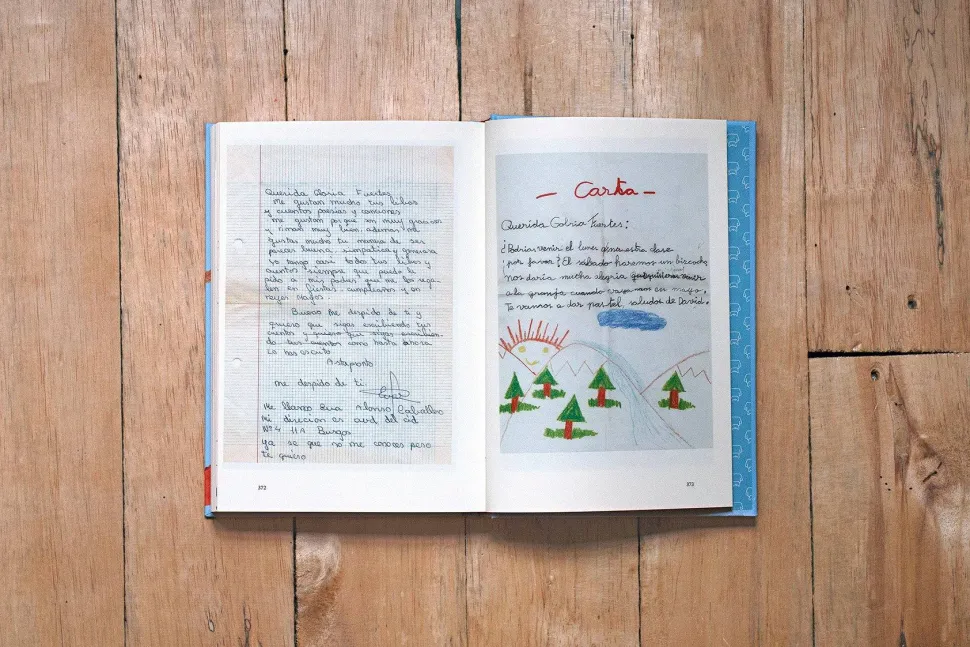 Querida Gloria Fuertes
Me gustan mucho tus libros
y cuentos poesias y canciones
me gustan porque son muy graciosos
y riman muy bien, ademas me
gustas mucho tu manera de ser
pareces buena, simpatica y generosa
Yo tengo casi todos tus libros y
cuentos siempre que puedo le
pido a mis padres que me los rega-
len en fiestas, cumpleaños y en
reyes Magos.
Bueno me despido de ti y
quiero que sigas escribiendo tus
cuentos y quiero que sigas escribien
do tus cuentos como hasta ahora
lo has escrito
Asta pronto
me despido de ti
Me llamo Eva Alonso Caballero
Mi direcion es avd. del cid
Nº 4 11A Burgos
ya se que no me conoces pero
te quiero
372
- Carta -
Querida Golria Fuertes:
¿Podrias venir el lunes a nuestra clase
por favor? El sabado haremos un bizcocho
nos daria mucha alegria
a la granja cuando vayamos en mayo.
Te vamos a dar pastel, saludos de David.
373